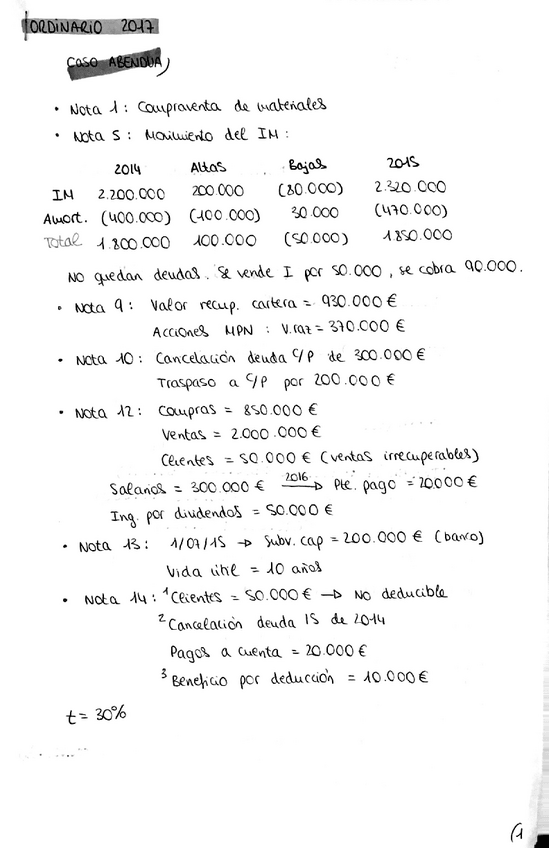 ORDINARIO 2017
CASO ABENDUA)
• Nota 1: Compraventa de materiales
• Nota 5: Movimiento del IM:
2014 Altas Bajas 2015
IM 2.200.000 200.000 (80.000) 2.320.000
Amort. (400.000) (100.000) 30.000 (470.000)
Total 1.800.000 100.000 (50.000) 1.850.000
No quedan deudas. Se vende I por 50.000, se cobra 90.000.
• Nota 9: Valor recup. cartera = 930.000 €
Acciones MPN: V.raz = 370.000 €
• Nota 10: Cancelación deuda C/P de 300.000 €
Traspaso a C/P por 200.000 €
• Nota 12: Compras = 850.000 €
Ventas = 2.000.000 €
Clientes = 50.000 € (ventas irrecuperables)
Salarios = 300.000 € 2016 → Pte. pago = 20000 €
Ing. por dividendos = 50.000 €
• Nota 13: 1/07/15 → Subv. cap = 200.000 € (barco)
Vida útil = 10 años
• Nota 14: ¹Clientes = 50.000 € → No deducible
²Cancelación deuda IS de 2014
Pagos a cuenta = 20.000 €
³Beneficio por deducción = 10.000 €
t = 30%
(1